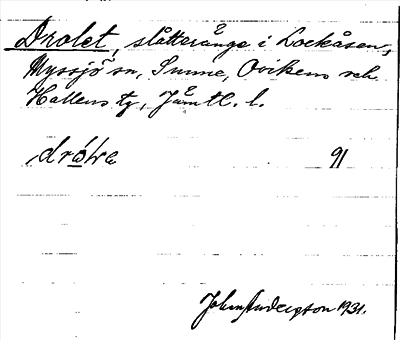 Drolet, slåtteränge i Lockåsen,
Myssjö sn, Sunne, Ovikens och
Hallens tg, Jämtl. l.
91
John Anderzson 1931.